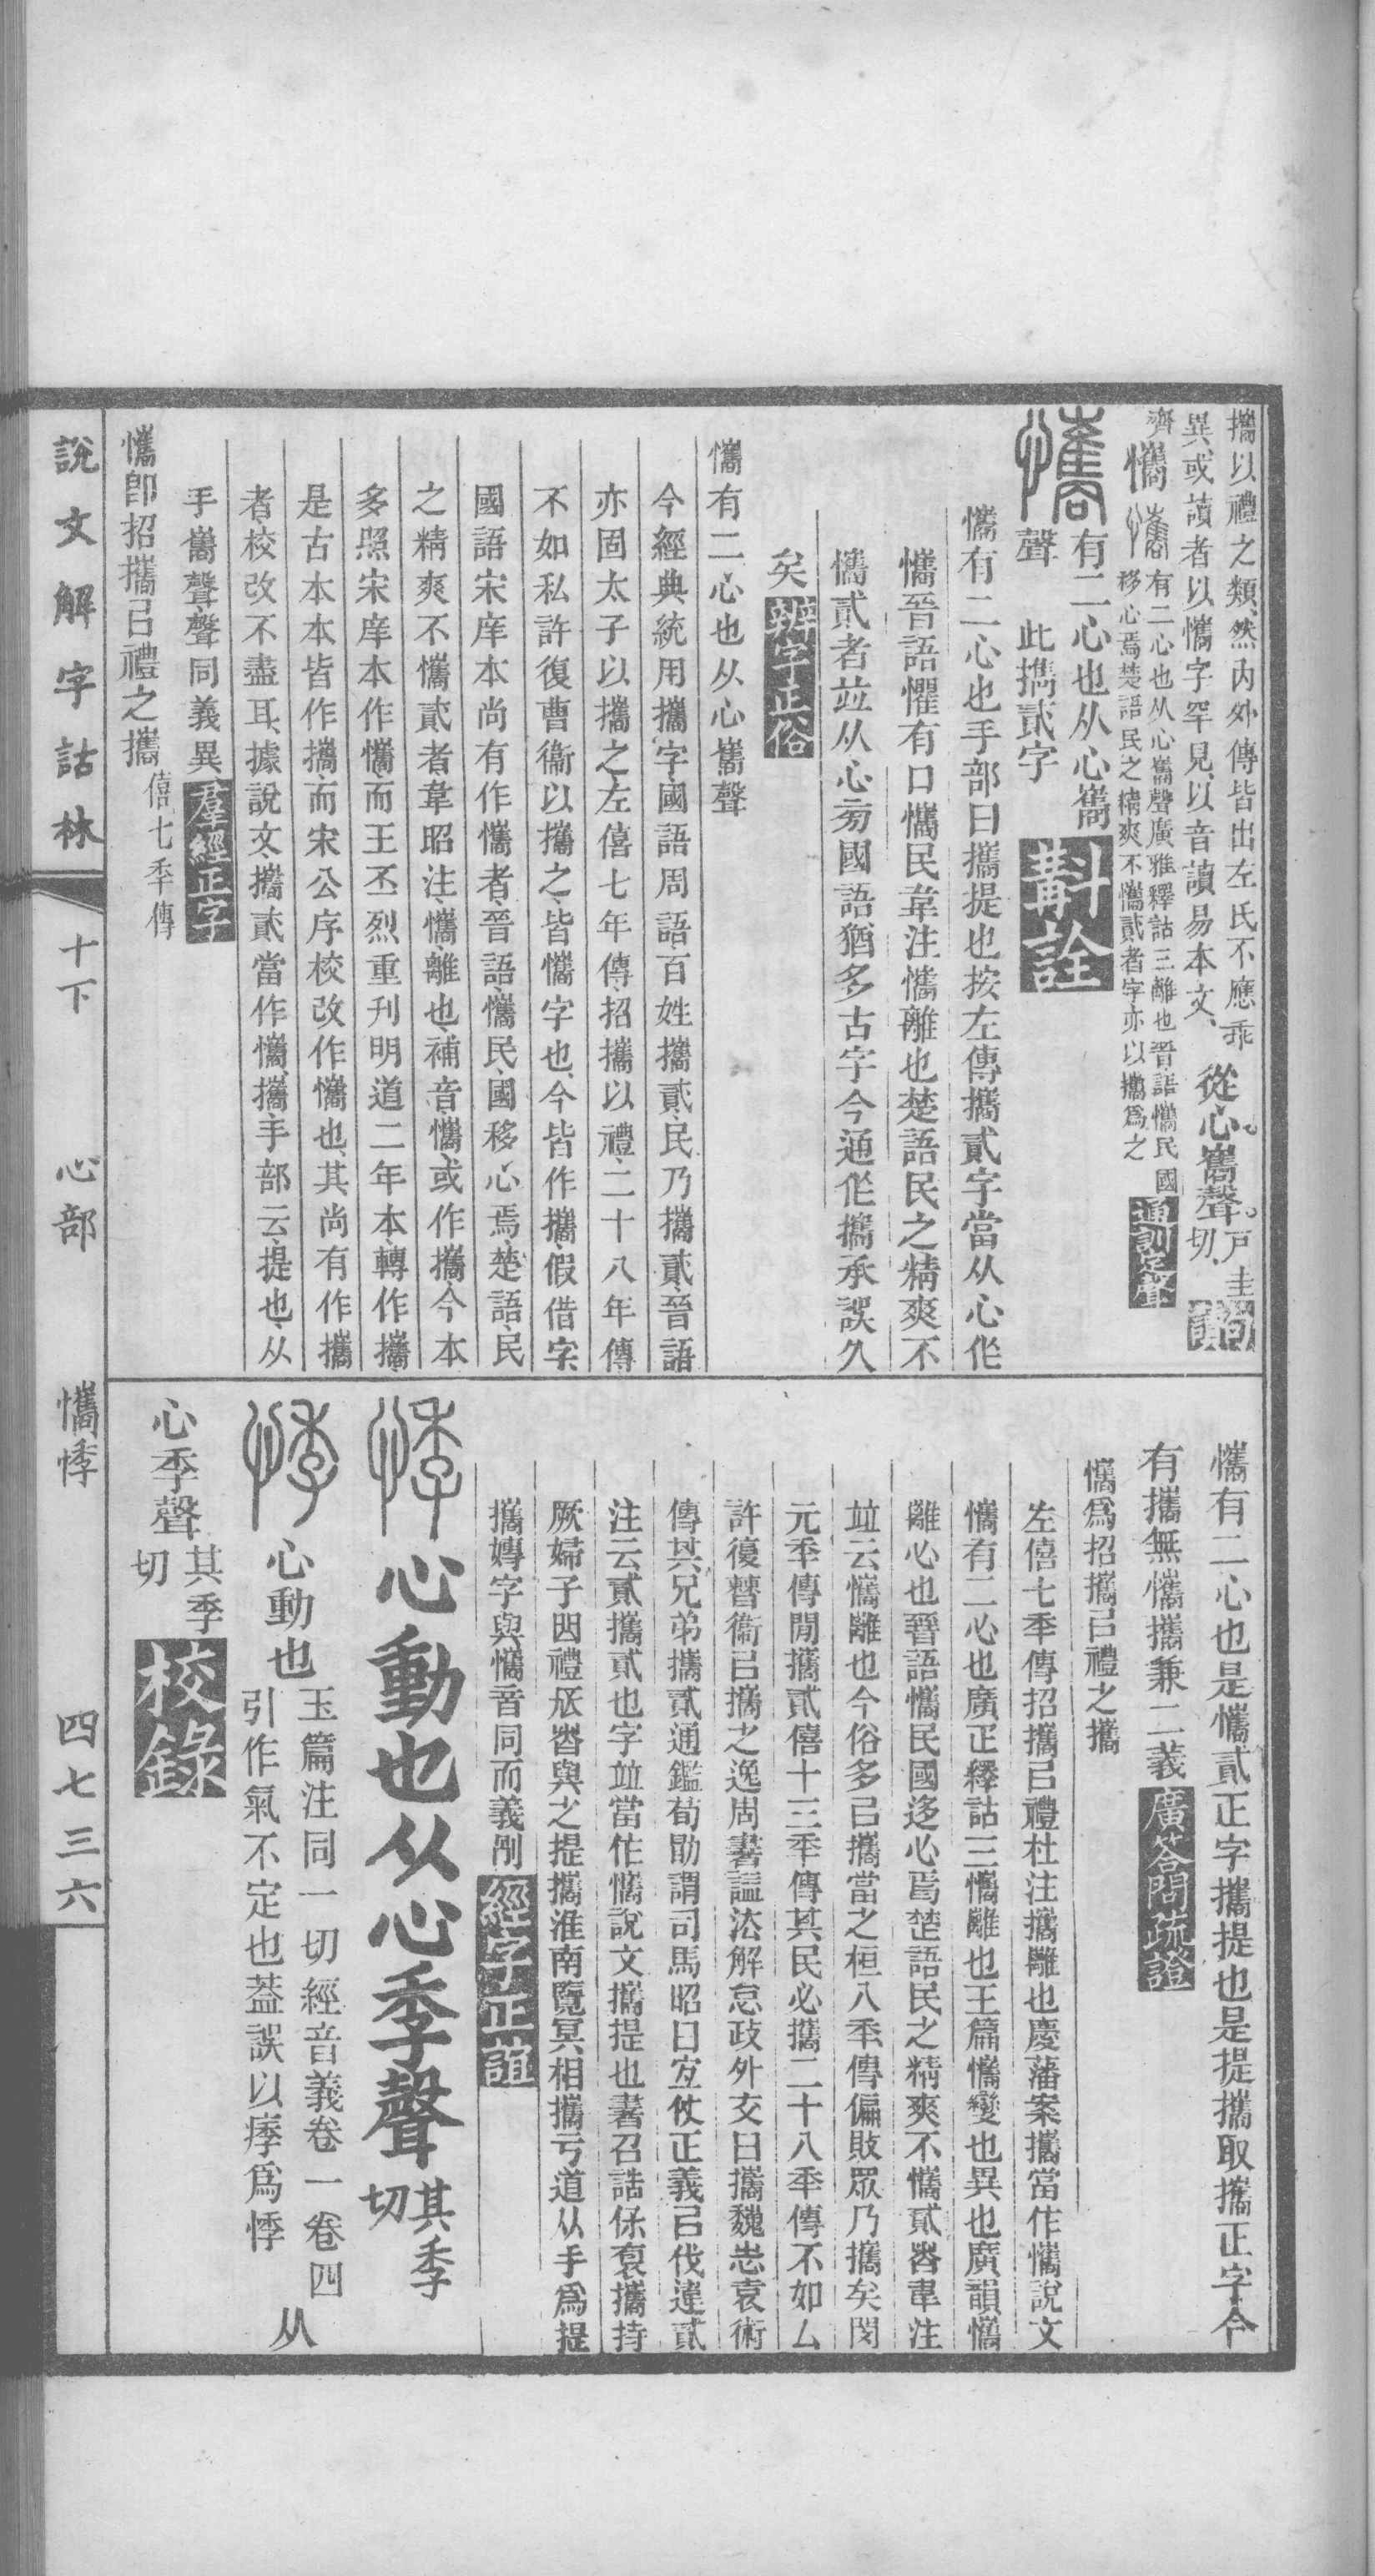 攜以禮之類、然內外傳皆出左氏不應乖
異、或讀者以懏字罕見、以音讀易本文、
從心巂聲。戶圭
切、
句讀
𢥘
有二心也从心巂聲廣雅釋詁三離也晉語𢥘民國
移心焉楚語民之精爽不𢥘貳者字亦以攜爲之
通訓定聲
有二心也从心巂
聲　此攜貳字
斠詮
𢥘有二心也手部曰攜提也按左傳攜貳字當从心作
𢥘晉語懼有口𢥘民韋注𢥘離也楚語民之精爽不
𢥘貳者竝从心㫄國語猶多古字今通作攜承誤久
矣
辨字正俗
𢥘有二心也从心巂聲
今經典統用攜字、國語周語、百姓攜貳、民乃攜貳、晉語
亦固太子以攜之、左僖七年傳、招攜以禮、二十八年傳
不如私許復曹衞以攜之、皆𢥘字也、今皆作攜、假借字
國語宋庠本尚有作𢥘者、晉語、𢥘民、國移心焉、楚語、民
之精爽不𢥘貳者、韋昭注、𢥘、離也、補音、𢥘或作攜、今本
多照宋庠本作𢥘、而王丕烈重刊明道二年本、轉作攜、
是古本本皆作攜、而宋公序校改作𢥘也、其尚有作攜
者、校改不盡耳、據說文、攜貳當作𢥘、攜、手部云、提也、从
手巂聲、聲同義異、
羣經正字
𢥘卽招攜㠯禮之攜
僖七秊傳
𢥘有二心也是𢥘貳正字攜提也是提攜取攜正字今
有攜無𢥘攜兼二義
廣答問疏證
𢥘爲招攜㠯禮之攜
左僖七秊傳招攜㠯禮杜注攜離也慶藩案攜當作𢥘說文
𢥘有二心也廣疋釋詁三𢥘離也玉篇𢥘變也異也廣韻𢥘
離心也晉語𢥘民國迻心焉楚語民之精爽不𢥘貳者韋注
竝云𢥘離也今俗多㠯攜當之桓八秊傳偏敗眾乃攜矣閔
元秊傳閒攜貳僖十三秊傳其民必攜二十八秊傳不如厶
許復曹衞㠯攜之逸周書諡法解怠政外交曰攜魏志袁術
傳其兄弟攜貳通鑑荀勖謂司馬昭曰宐仗正義㠯伐違貳
注云貳攜貳也字竝當作𢥘說文攜提也書召誥保褱攜持
厥婦子因禮𠂢者與之提攜淮南覽冥相攜亏道从手爲提
攜專字與𢥘音同而義別
經字正誼
心動也从心季聲
其季
切
心動也
玉篇注同一切經音義卷一卷四
引作氣不定也蓋誤以痵爲悸
从
心季聲
其季
切
校錄
說文解字詁林
十下
心部
𢥘悸
四七三六